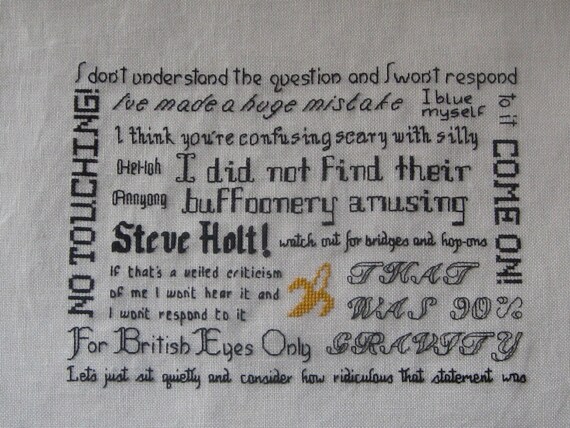 I don't understand the question and I won't respond
to it
I've made a huge mistake
I blue
myself
NO TOUCHING!
I think you're confusing scary with silly
COME ON!
HeHoh
I did not find their
Annyong
buffoonery amusing
Steve Holt!
watch out for bridges and hop-ons
If that's a veiled criticism
of me I won't hear it and
I won't respond to it
THAT
WAS 90%
GRAVITY
For British Eyes Only
Lets just sit quietly and consider how ridiculous that statement was